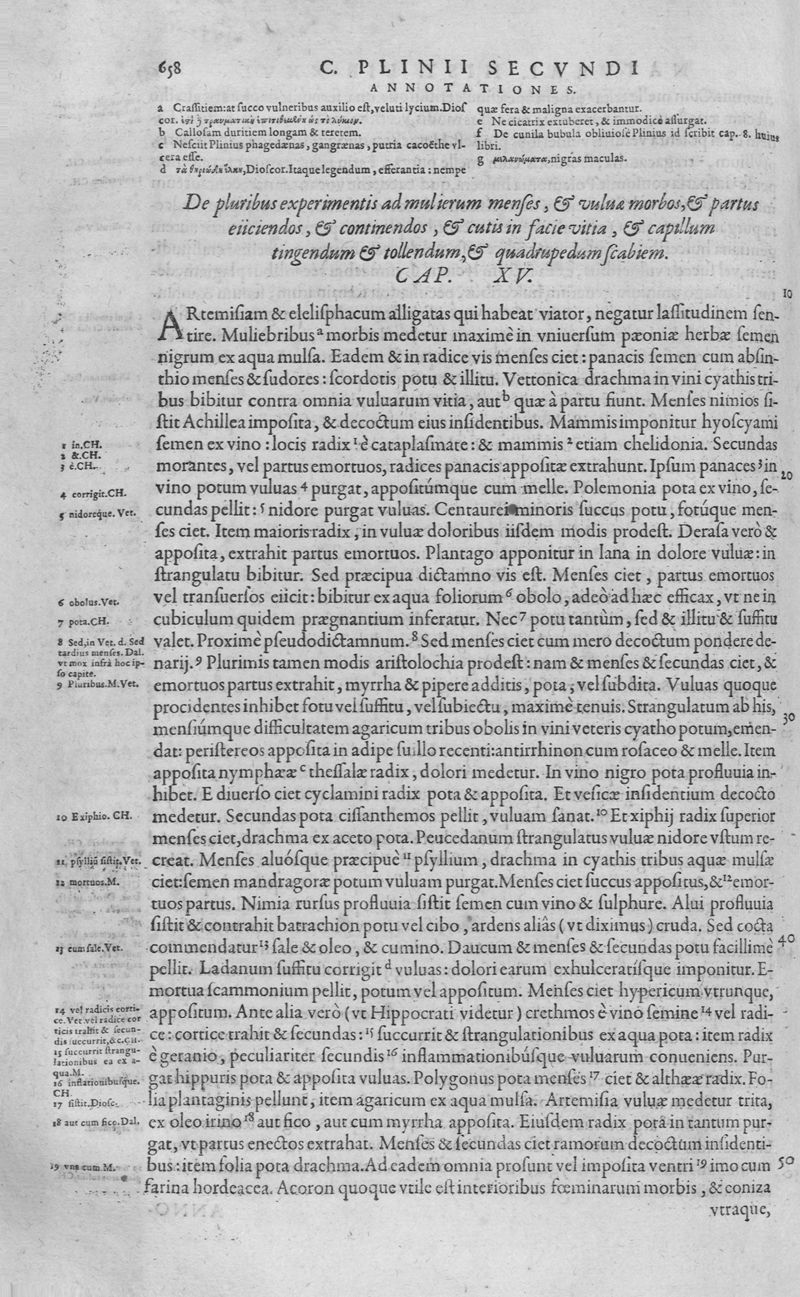 658
C. PLINII SECVNDI
ANNOTATIONES.
a Craſſitiem: at ſucco vulneribus auxilio eſt, veluti lycium. Dioſ
cor.
b Calloſam duritiem longam & teretem.
c Neſciit Plinius phagedænas, gangrænas, putria cacoëthe vl-
cera eſſe.
d Dioſcor. Itaque legendum, efferantia: nempe
quæ fera & maligna exacerbantur.
e Ne cicatrix extuberet, & immodicè aſſurgat.
f De cunila bubula obliuioſè Plinius id ſcribit cap. 8. huius
libri.
g nigras maculas.
De pluribus experimentis ad mulierum menſes, & vuluæ morbos, & partus
eiiciendos, & continendos, & cutis in facie vitia, & capillum
tingendum & tollendum, & quadrupedum ſcabiem.
CAP. XV.
10
ARtemiſiam & eleliſphacum alligatas qui habeat viator, negatur laſſitudinem ſen-
tire. Muliebribus a morbis medetur maximè in vniuerſum pæoniæ herbæ ſemen
nigrum ex aqua mulſa. Eadem & in radice vis menſes ciet: panacis ſemen cum abſin-
thio menſes & ſudores: ſcordotis potu & illitu. Vettonica drachma in vini cyathis tri-
bus bibitur contra omnia vuluarum vitia, aut b quæ à partu fiunt. Menſes nimios ſi-
ſtit Achillea impoſita, & decoctum eius inſidentibus. Mammis imponitur hyoſcyami
1 in. CH.
ſemen ex vino: locis radix 1 è cataplaſmate: & mammis 2 etiam chelidonia. Secundas
2 &. CH.
3 è. CH.
morantes, vel partus emortuos, radices panacis appoſitæ extrahunt. Ipſum panaces 3 in
20
4 corrigit. CH.
vino potum vuluas 4 purgat, appoſitúmque cum melle. Polemonia pota ex vino, ſe-
5 nidoreque. Vet.
cundas pellit: 5 nidore purgat vuluas. Centaurei minoris ſuccus potu, fotúque men-
ſes ciet. Item maioris radix, in vuluæ doloribus iiſdem modis prodeſt. Deraſa verò &
appoſita, extrahit partus emortuos. Plantago apponitur in lana in dolore vuluæ: in
ſtrangulatu bibitur. Sed præcipua dictamno vis eſt. Menſes ciet, partus emortuos
6 obolus. Vet.
vel tranſuerſos eiicit: bibitur ex aqua foliorum 6 obolo, adeò ad hæc efficax, vt ne in
7 pota. CH.
cubiculum quidem prægnantium inferatur. Nec 7 potu tantùm, ſed & illitu & ſuffitu
8 Sed, in Vet. d. Sed
tardius menſes. Dal.
vt mox infrà hoc ip-
ſo capite.
valet. Proximè pſeudodictamnum. 8 Sed menſes ciet cum mero decoctum pondere de-
narij. 9 Plurimis tamen modis ariſtolochia prodeſt: nam & menſes & ſecundas ciet, &
9 Pluribus. M. Vet.
emortuos partus extrahit, myrrha & pipere additis, pota, vel ſubdita. Vuluas quoque
procidentes inhibet fotu vel ſuffitu, vel ſubiectu, maximè tenuis. Strangulatum ab his,
30
menſiúmque difficultatem agaricum tribus obolis in vini veteris cyatho potum, emen-
dat: periſtereos appoſita in adipe ſuillo recenti: antirrhinon cum roſaceo & melle. Item
appoſita nymphææ c theſſalæ radix, dolori medetur. In vino nigro pota profluuia in-
hibet. E diuerſo ciet cyclamini radix pota & appoſita. Et veſicæ inſidentium decocto
10 Exiphio. CH.
medetur. Secundas pota ciſſanthemos pellit, vuluam ſanat. 10 Et xiphij radix ſuperior
menſes ciet, drachma ex aceto pota. Peucedanum ſtrangulatus vuluæ nidore vſtum re-
11 pſylliũ ſiſtit. Vet.
creat. Menſes aluóſque præcipuè 11 pſyllium, drachma in cyathis tribus aquæ mulſæ
12 mortuos. M.
ciet: ſemen mandragoræ potum vuluam purgat. Menſes ciet ſuccus appoſitus, & 12 emor-
tuos partus. Nimia rurſus profluuia ſiſtit ſemen cum vino & ſulphure. Alui profluuia
ſiſtit & contrahit batrachion potu vel cibo, ardens aliâs (vt diximus) cruda. Sed cocta
13 cum ſale. Vet.
commendatur 13 ſale & oleo, & cumino. Daucum & menſes & ſecundas potu facillimè
40
pellit. Ladanum ſuffitu corrigit d vuluas: dolori earum exhulceratíſque imponitur. E-
mortua ſcammonium pellit, potum vel appoſitum. Menſes ciet hypericum vtrunque,
14 vel radicis corti-
ce. Vet. vel radice cor
ticis trahit & ſecun-
dis ſuccurrit, &c. CH.
appoſitum. Ante alia verò (vt Hippocrati videtur) crethmos è vino ſemine 14 vel radi-
ce: cortice trahit & ſecundas: 15 ſuccurrit & ſtrangulationibus ex aqua pota: item radix
15 ſuccurrit ſtrangu-
lationibus ea ex a-
qua. M.
è geranio, peculiariter ſecundis 16 inflammationibúſque vuluarum conueniens. Pur-
16 inflationibuſque.
CH.
gat hippuris pota & appoſita vuluas. Polygonus pota menſes 17 ciet & althææ radix. Fo-
17 ſiſtit. Dioſc.
lia plantaginis pellunt, item agaricum ex aqua mulſa. Artemiſia vuluæ medetur trita,
18 aut cum fico. Dal.
ex oleo irino 18 aut fico, aut cum myrrha appoſita. Eiuſdem radix pota in tantum pur-
gat, vt partus enectos extrahat. Menſes & ſecundas ciet ramorum decoctum inſidenti-
19 vnà cum. M.
bus: item folia pota drachma. Ad eadem omnia proſunt vel impoſita ventri 19 imo cum
50
farina hordeacea. Acoron quoque vtile eſt interioribus fœminarum morbis, & coniza
vtraque,